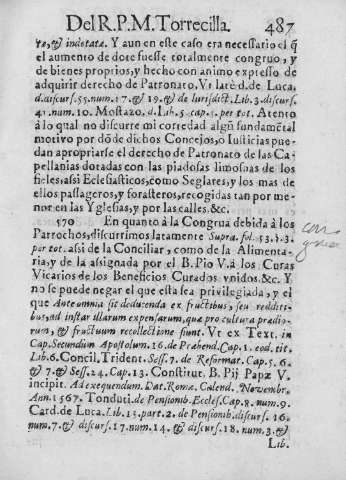 Del R.P.M. Torrecilla. 487
to, & indotata. Y aun en este caso era necessario el q̃
el aumento de dote fuesse totalmente congruo, y
de bienes proprios, y hecho con animo expresso de
adquirir derecho de Patronato. Vt latè d. de Luca,
d. discurs. 55. num. 17. & 19. & de Iurisdict. Lib. 3. discurs.
41. num. 10. Mostazo, d. Lib. 5. cap. 5. per tot. Atento
à lo qual no discurre mi cortedad algũ fundamẽtal
motivo por dõde dichos Concejos, o Iusticias pue-
dan apropriarse el derecho de Patronato de las Ca-
pellanias dotadas con las piadosas limosnas de los
fieles, assi Eclesiasticos, como Seglares, y los mas de
ellos passageros, y forasteros, recogidas tan por me-
nor en las Yglesias, y por las calles &c.
570 En quanto à la Congrua debida à los
Parrochos, discurrimos latamente Supra. fol. 53. §. 3.
per tot. assi de la Conciliar, como de la Alimenta-
ria, y de la assignada por el B. Pio V. à los Curas
Vicarios de los Beneficios Curados vnidos. &c. Y
no se puede negar el que esta sea privilegiada, y el
que Ante omnia sit deducenda ex fructibus, seu redditi-
bus, ad instar illarum expensarum, quæ pro cultura prædio-
rum, & fructuum recollectione fiunt. Vt ex Text. in
Cap. Secundum Apostolum. 16. de Præbend. Cap. 1. eod. tit.
Lib. 6. Concil. Trident. Sess. 7. de Reformat. Cap. 5. 6.
& 7. & Sess. 24. Cap. 13. Constitut. B. Pij Papæ V.
incipit. Ad exequendum. Dat. Romæ. Calend. Novembr.
Ann. 1567. Tonduti. de Pensionib. Eccles. Cap. 8. num. 9.
Card. de Luca. Lib. 13. part. 2. de Pensionib. discurs. 16.
num. 7. & discurs. 17. num. 14. & discurs. 18. num. 3. &
Lib.